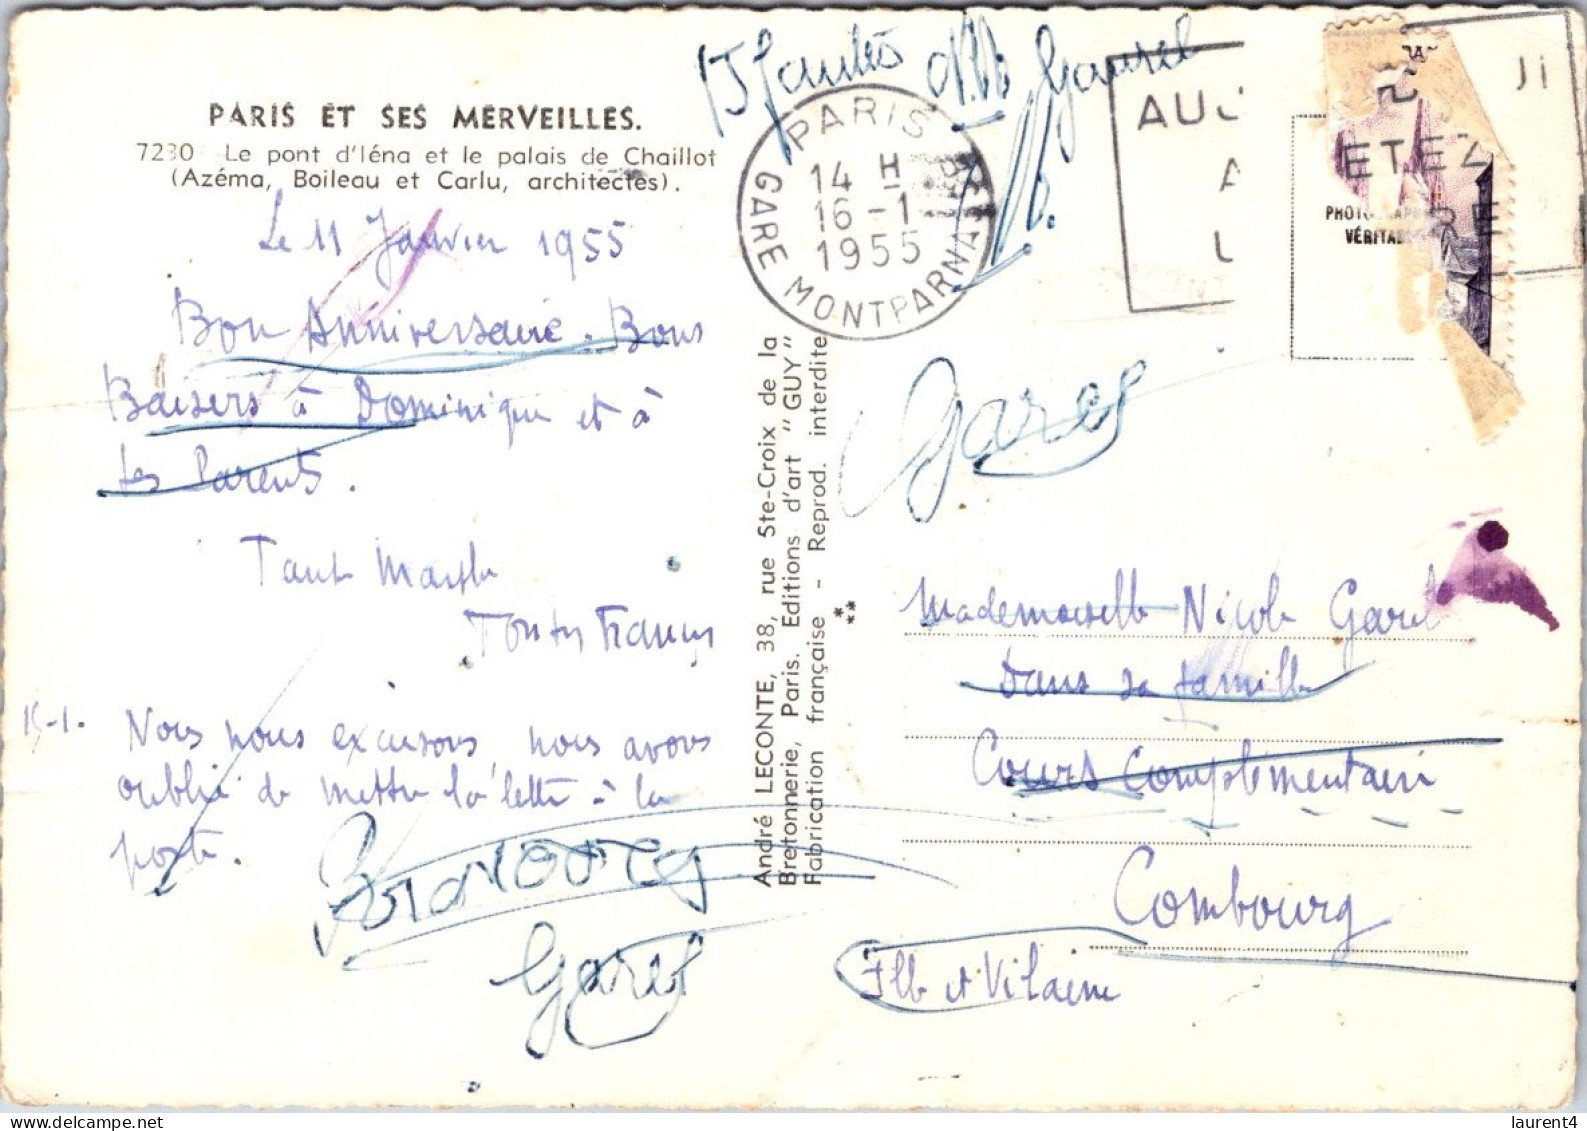 PARIS ET SES MERVEILLES.
7230 - Le pont d'Iéna et le palais de Chaillot
(Azéma, Boileau et Carlu, architectes).
Le 11 Janvier 1955
Bon Anniversaire. Bons
Baisers à Dominique et à
tes Parents.
15-1. Nous nous excusons, nous avons
oublié de mettre la lettre à la
poste.
Garel
André LECONTE, 38, rue Ste-Croix de la
Bretonnerie, Paris. Editions d'art "GUY"
Fabrication française - Reprod. interdite
15 fautes
PARIS
GARE MONTPARNASSE
14 H
16-1
1955
PHOTOGRAPHIE
VÉRITABLE
Garel
Mademoiselle Nicole Garel
Dans sa famille
Cours Complémentaire
Combourg
Ille et Vilaine
laurent4